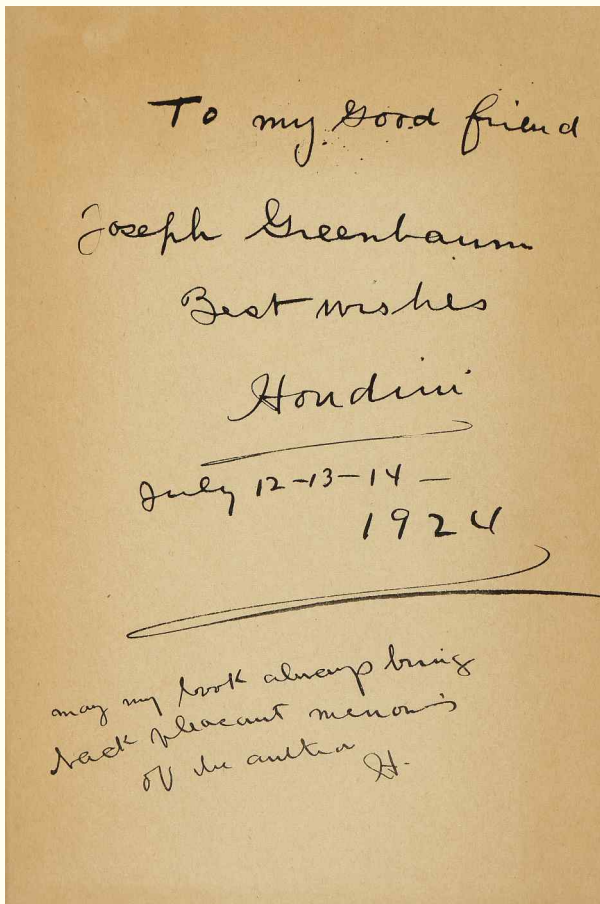 To my good friend
Joseph Greenbaum
Best wishes
Houdini
July 12-13-14 -
1924
may my book always bring
back pleasant memories
of the author
H.